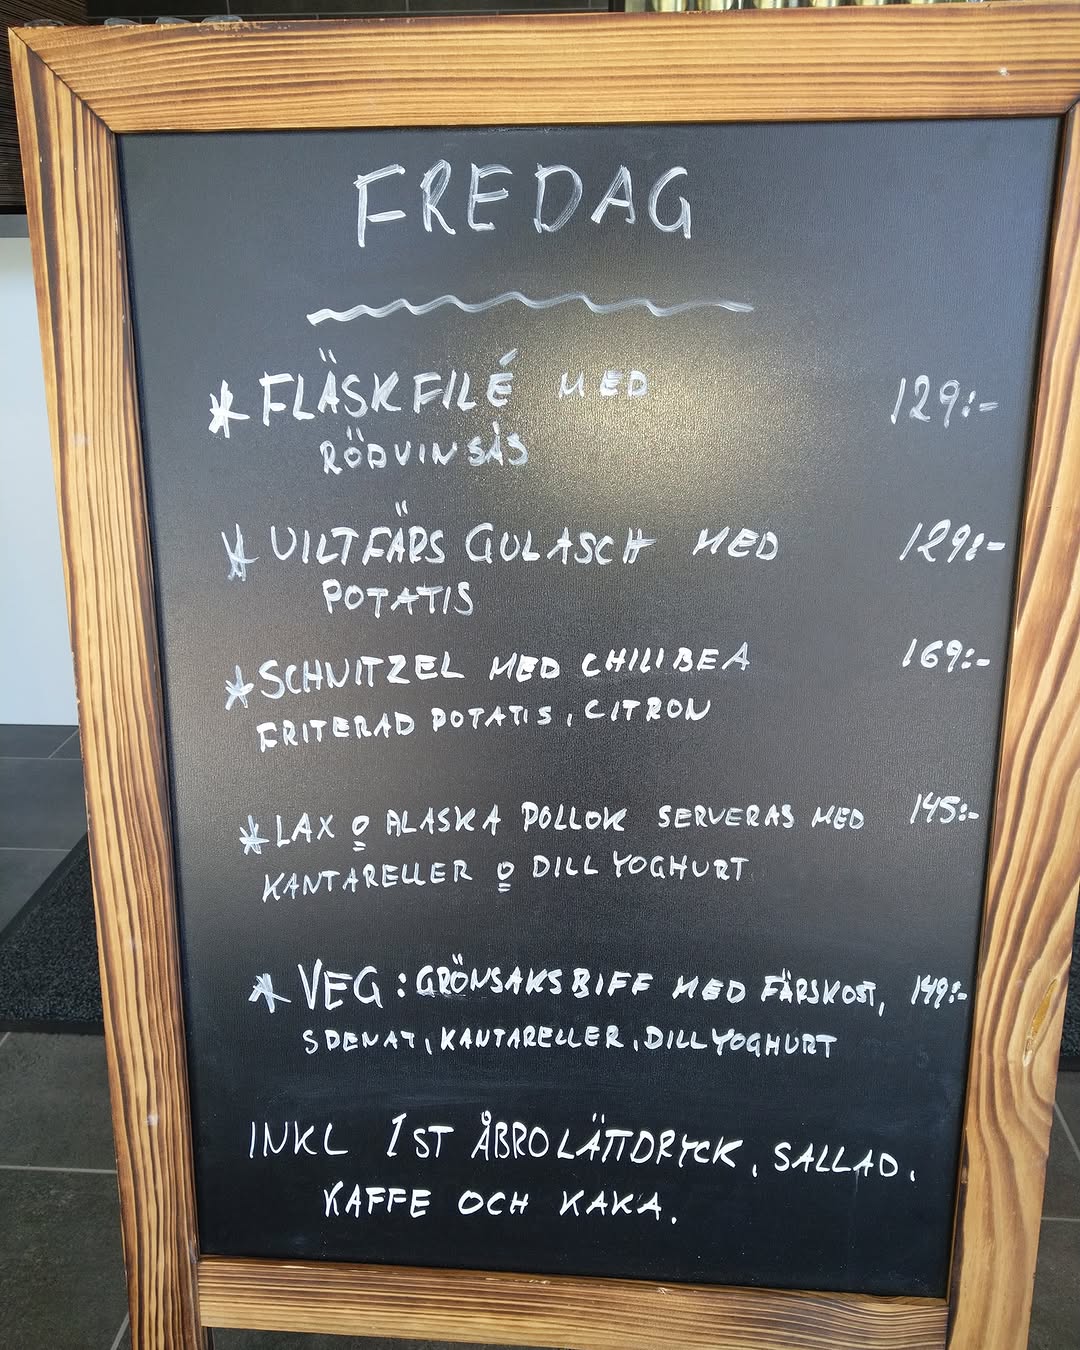 FREDAG
* FLÄSKFILÉ MED 129:-
RÖDVINSÅS
* VILTFÄRS GULASCH MED 129:-
POTATIS
* SCHNITZEL MED CHILIBEA 169:-
FRITERAD POTATIS, CITRON
* LAX o ALASKA POLLOK SERVERAS MED 145:-
KANTARELLER o DILLYOGHURT
* VEG: GRÖNSAKSBIFF MED FÄRSKOST, 149:-
SPENAT, KANTARELLER, DILLYOGHURT
INKL 1ST ÅBRO LÄTTDRYCK, SALLAD,
KAFFE OCH KAKA.